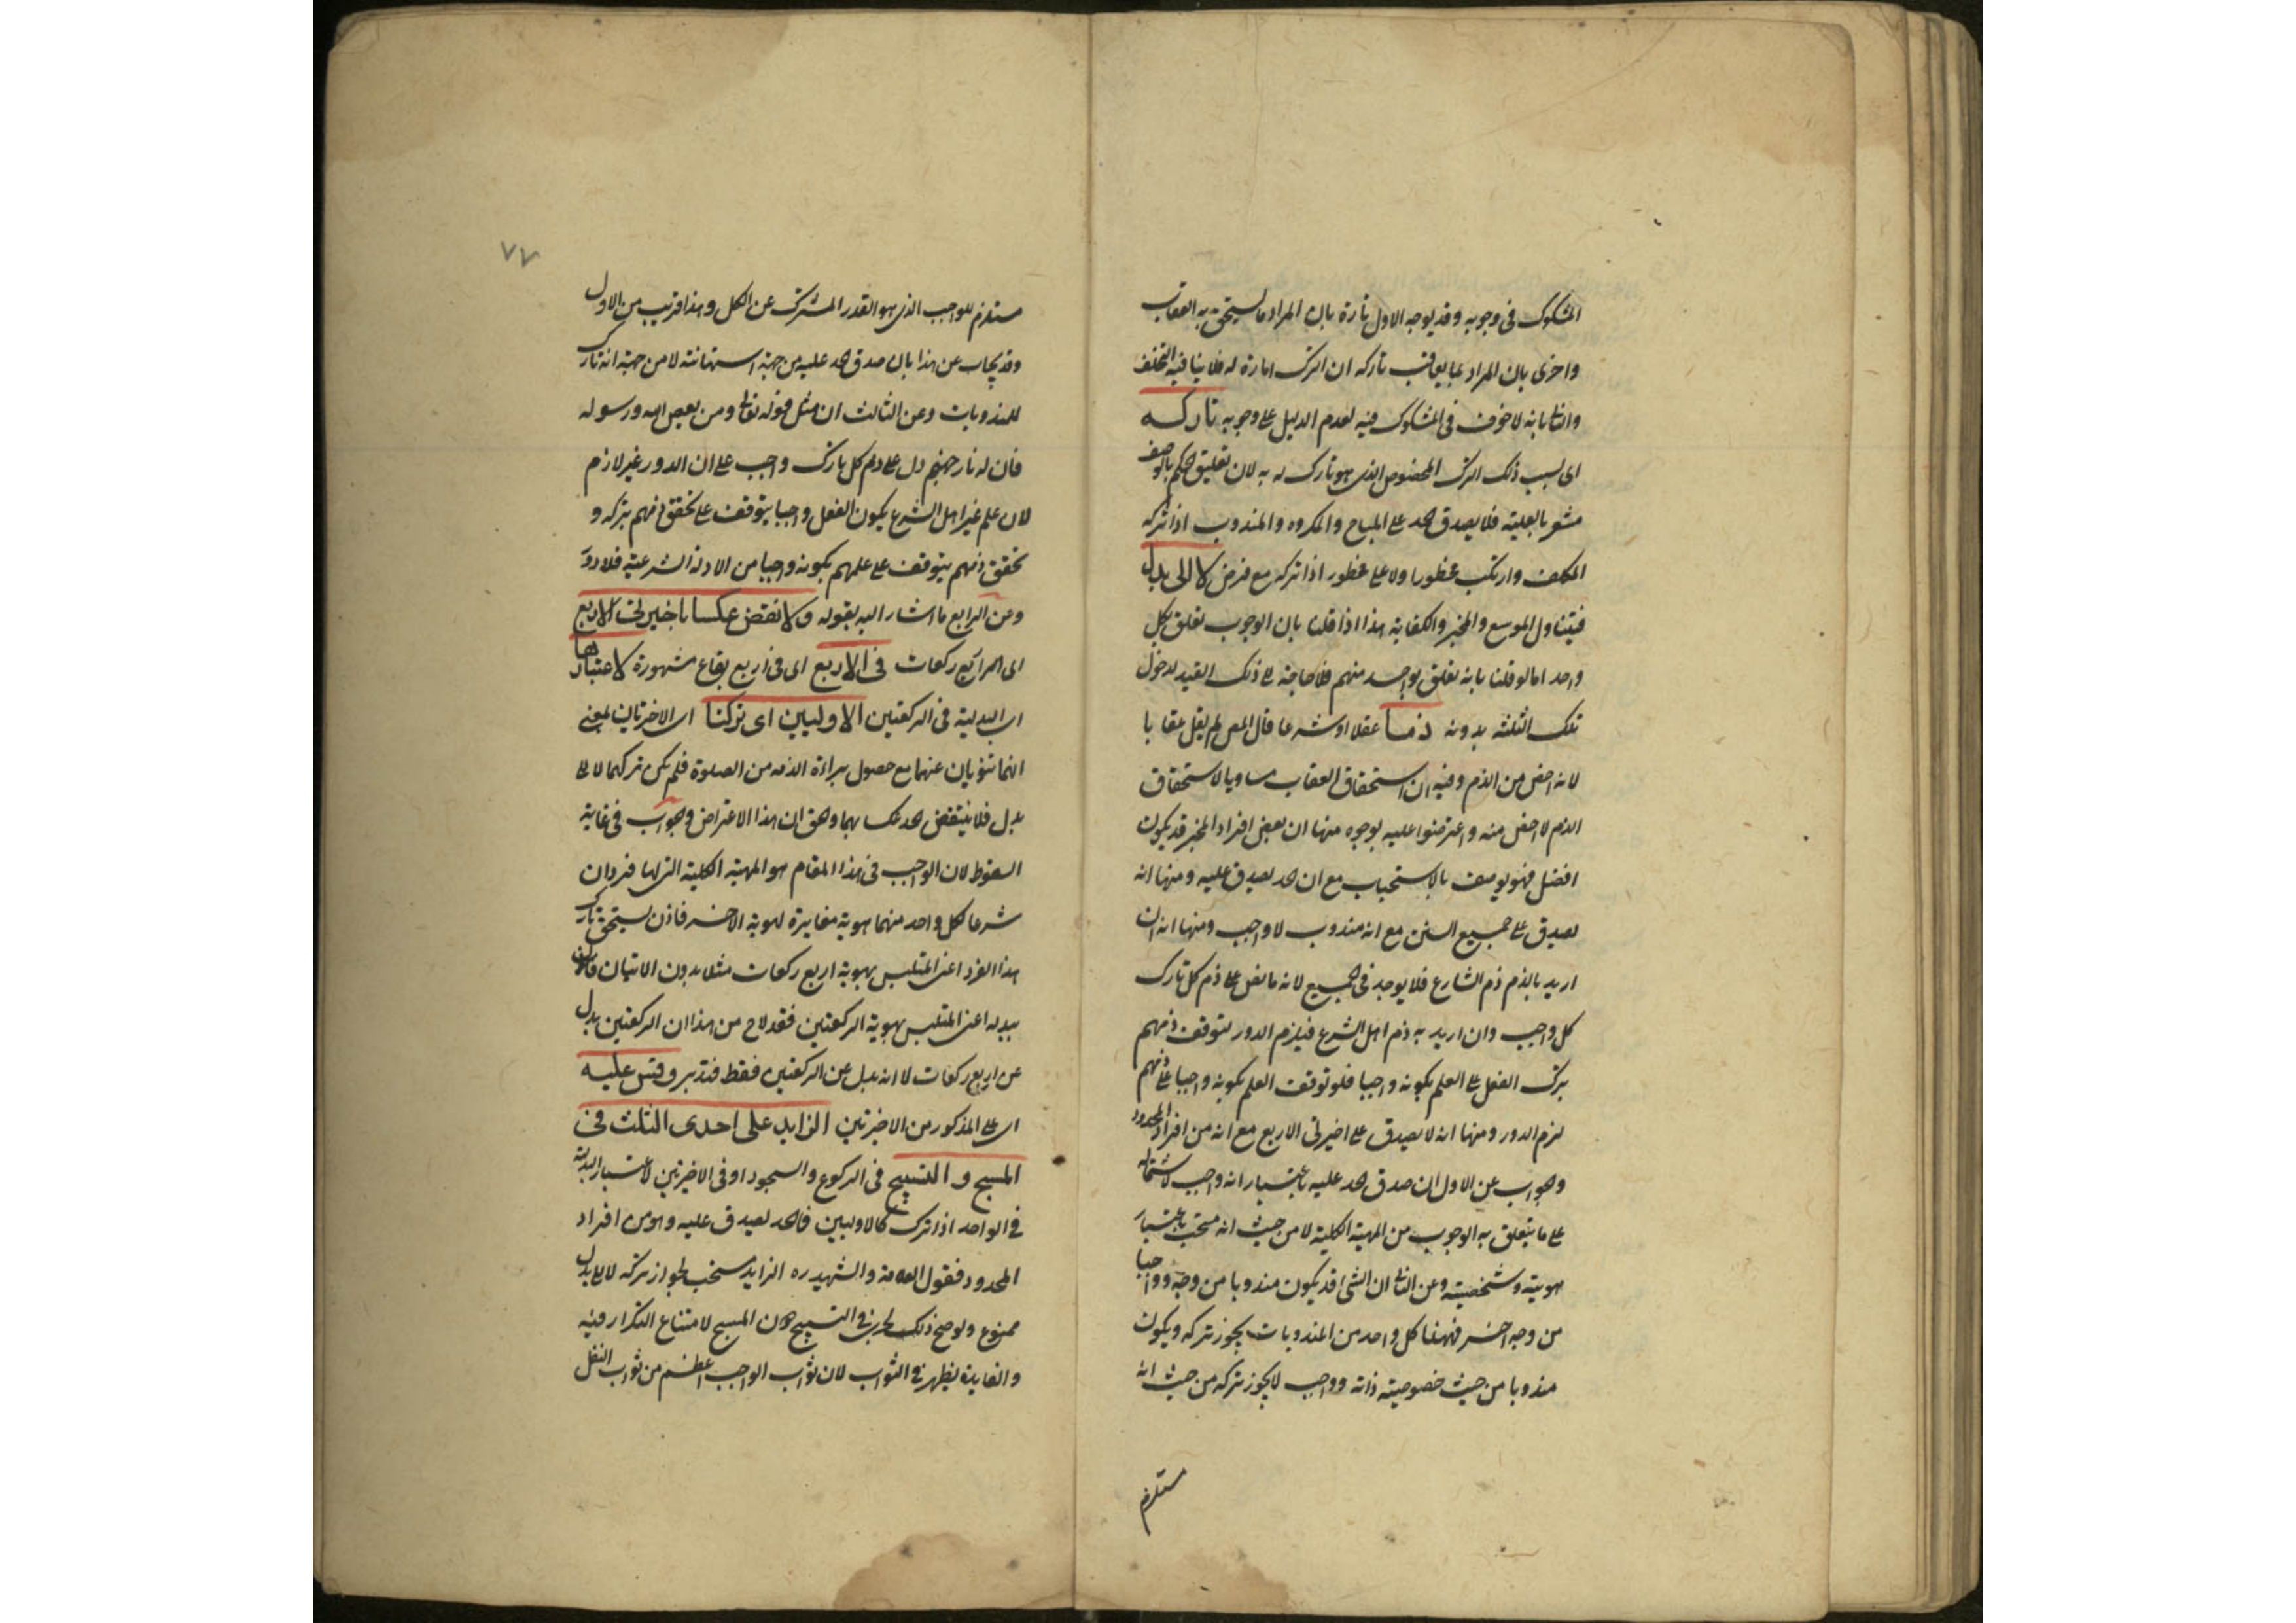 المشكوك فى وجوبه وقد يوجه الاول تارة بان المراد ما يستحق به العقاب
واخرى بان المراد بما يعاقب تاركه ان الترك امارة له فلا ينافيه التخلف
والثانى بانه لا خوف فى المشكوك فيه لعدم الدليل على وجوبه تاركه
اى بسبب ذلك الترك المخصوص الذى هو تارك له به لان تعليق الحكم بالوصف
مشعر بالعلية فلا يصدق الحد على المباح والمكروه والمندوب اذا تركه
المكلف وارتكب محظورا ولا على محظور اذا تركه مع فرض لا الى بدل
فيتناول الموسع والمخير والكفاية هذا اذا قلنا بان الوجوب تعلق بكل
واحد اما لو قلنا بانه تعلق بواحد منهم فلا حاجة الى ذلك القيد لدخول
تلك الثلثة بدونه ذما عقلا او شرعا قال المص لم يقل عقابا
لانه اخص من الذم وفيه ان استحقاق العقاب مساويا لاستحقاق
الذم لا اخص منه واعترضوا عليه بوجوه منها ان بعض افراد المخير قد يكون
افضل فهو يوصف بالاستحباب مع ان الحد يصدق عليه ومنها انه
يصدق على جميع السنن مع انه مندوب لا واجب ومنها انه ان
اريد بالذم ذم الشارع فلا يوجد فى الجميع لانه ما نص على ذم كل تارك
كل واجب وان اريد به ذم اهل الشرع فيلزم الدور لتوقف ذمهم
بترك الفعل على العلم بكونه واجبا فلو توقف العلم بكونه واجبا على ذمهم
لزم الدور ومنها انه لا يصدق على اخيرتى الاربع مع انه من افراد المحدود
والجواب عن الاول ان صدق الحد عليه باعتبار انه واجب لاشتماله
على ما يتعلق به الوجوب من المهية الكلية لا من حيث انه مستحب باعتبار
هويته وشخصيته وعن الثانى ان الشئ قد يكون مندوبا من وجه وواجبا
من وجه اخر فههنا كل واحد من المندوبات يجوز تركه ويكون
مندوبا من حيث خصوصيته ذاته وواجب لا يجوز تركه من حيث انه
مستلزم
٧٧
مستلزم للواجب الذى هو القدر المشترك عن الكل وهذا قريب من الاول
وقد يجاب عن هذا بان صدق الحد عليه من جهة استهانته لا من جهة انه تارك
للمندوبات وعن الثالث ان مثل قوله تعالى ومن يعص الله ورسوله
فان له نار جهنم دل على ذم كل تارك واجب على ان الدور غير لازم
لان علم غير اهل الشرع بكون الفعل واجبا يتوقف على تحقق ذمهم بتركه و
تحقق ذمهم يتوقف على علمهم بكونه واجبا من الادلة الشرعية فلا دور
وعن الرابع ما اشار اليه بقوله ولا نقض عكسا باخيرتى الاربع
اى الاربع ركعات فى الاربع اى فى اربع بقاع مشهورة لاعتبارها
اى البدلية فى الركعتين الاوليين اى تركنا اى الاخرتان بمعنى
انهما تؤديان عنهما مع حصول براءة الذمه من الصلوة فلم يكن تركهما لا الى
بدل فلا ينتقض الحد عكسا بهما والحق ان هذا الاعتراض والجواب فى غاية
السقوط لان الواجب فى هذا المقام هو المهية الكلية التى لها فردان
شرعا لكل واحد منهما هوية مغايرة لهوية الاخر فاذن يستحق تارك
هذا الفرد اعنى المتلبس بهوية اربع ركعات مثلا بدون الاتيان
ببدله اعنى المتلبس بهوية الركعتين فقد لاح من هذا ان الركعتين بدل
عن اربع ركعات لا انه بدل عن الركعتين فقط فتدبر وقس عليه
اى على المذكور من الاخيرتين الزايد على احدى الثلث فى
المسح والتسبيح فى الركوع والسجود او فى الاخيرتين لاعتبار البدلية
فى الواحد اذا ترك كالاوليين فالحد يصدق عليه وهو من افراد
المحدود فقول العلامة والشهيد ره الزايد مستحب لجواز تركه لا الى بدل
ممنوع ولو صح ذلك لجرى فى التسبيح دون المسح لامتناع التكرار فيه
والفايدة يظهر فى الثواب لان ثواب الواجب اعظم من ثواب النفل